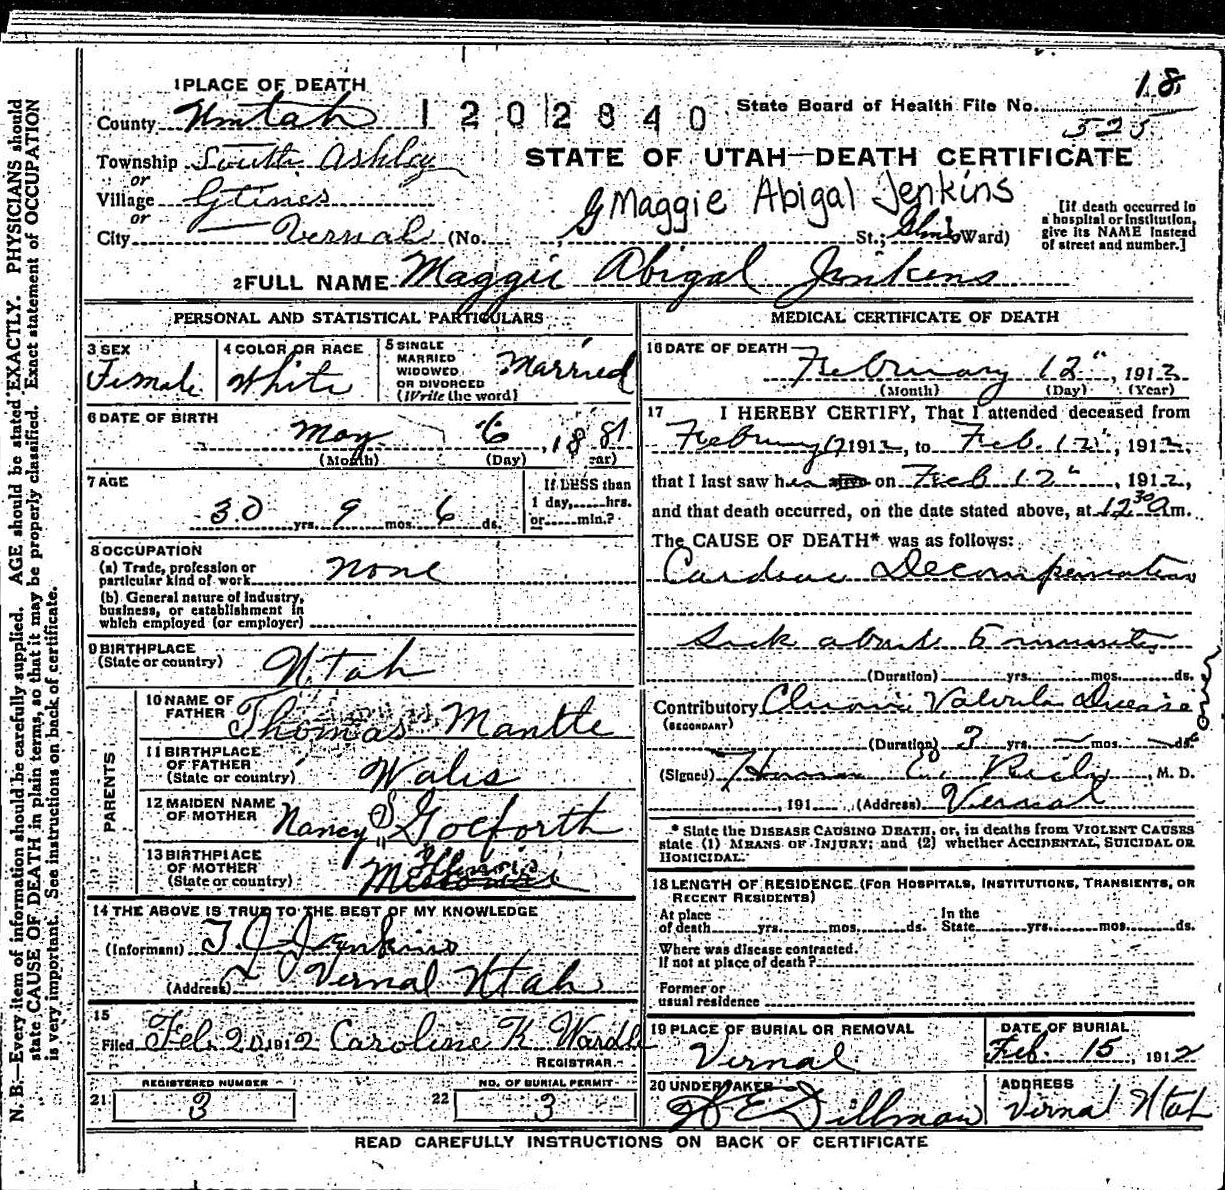 1 PLACE OF DEATH
County Uintah
1202840
State Board of Health File No. 18
525
Township South Ashley
or
Village Glines
or
City Vernal (No. St.; Ward)
STATE OF UTAH—DEATH CERTIFICATE
Maggie Abigal Jenkins
[If death occurred in
a hospital or institution,
give its NAME instead
of street and number.]
2 FULL NAME Maggie Abigal Jenkins
PERSONAL AND STATISTICAL PARTICULARS
3 SEX
Female
4 COLOR OR RACE
White
5 SINGLE
MARRIED
WIDOWED
OR DIVORCED
(Write the word)
Married
6 DATE OF BIRTH
May 6, 1881
(Month) (Day) (Year)
7 AGE
30 yrs. 9 mos. 6 ds.
If LESS than
1 day, hrs.
or min.?
8 OCCUPATION
(a) Trade, profession or
particular kind of work None
(b) General nature of industry,
business, or establishment in
which employed (or employer)
9 BIRTHPLACE
(State or country) Utah
PARENTS
10 NAME OF
FATHER Thomas Mantle
11 BIRTHPLACE
OF FATHER
(State or country) Wales
12 MAIDEN NAME
OF MOTHER Nancy S Goforth
13 BIRTHPLACE
OF MOTHER
(State or country) Illinois
14 THE ABOVE IS TRUE TO THE BEST OF MY KNOWLEDGE
(Informant) T. J. Jenkins
(Address) Vernal Utah
15
Filed Feb. 20, 1912 Caroline K Wardle
REGISTRAR
REGISTERED NUMBER
21 3
NO. OF BURIAL PERMIT
22 3
MEDICAL CERTIFICATE OF DEATH
16 DATE OF DEATH
February 12", 1912
(Month) (Day) (Year)
17 I HEREBY CERTIFY, That I attended deceased from
February 12 1912, to Feb. 12", 1912,
that I last saw her on Feb 12", 1912,
and that death occurred, on the date stated above, at 12 30 a m.
The CAUSE OF DEATH* was as follows:
Cardiac Decompensation
Sick about 5 minutes
(Duration) yrs. mos. ds.
Contributory Chronic Valvular Disease
(SECONDARY)
over
(Duration) 3 yrs. — mos. — ds.
(Signed) M. D.
, 191 (Address) Vernal
* State the DISEASE CAUSING DEATH, or, in deaths from VIOLENT CAUSES
state (1) MEANS OF INJURY; and (2) whether ACCIDENTAL, SUICIDAL OR
HOMICIDAL.
18 LENGTH OF RESIDENCE (FOR HOSPITALS, INSTITUTIONS, TRANSIENTS, OR
RECENT RESIDENTS)
At place
of death yrs. mos. ds.
In the
State yrs. mos. ds.
Where was disease contracted.
If not at place of death?
Former or
usual residence
19 PLACE OF BURIAL OR REMOVAL
Vernal
DATE OF BURIAL
Feb. 15, 1912
20 UNDERTAKER
Dillman
ADDRESS
Vernal Utah
READ CAREFULLY INSTRUCTIONS ON BACK OF CERTIFICATE
N. B.—Every item of information should be carefully supplied. AGE should be stated EXACTLY. PHYSICIANS should
state CAUSE OF DEATH in plain terms, so that it may be properly classified. Exact statement of OCCUPATION
is very important. See instructions on back of certificate.